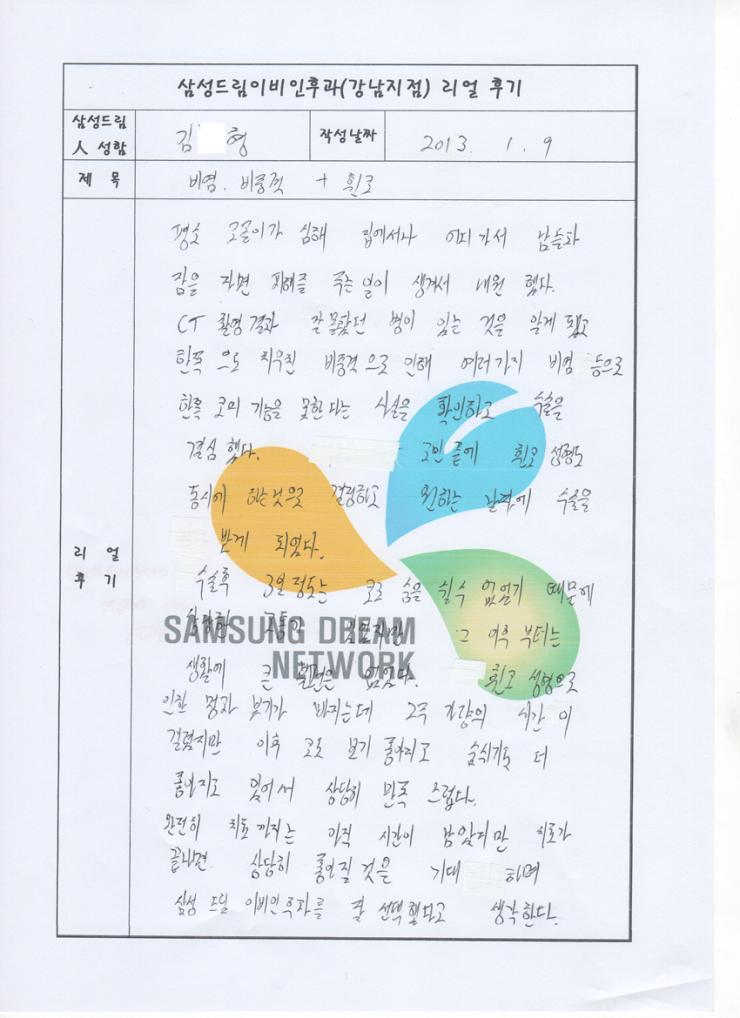 삼성드림이비인후과(강남지점) 리얼 후기
삼성드림
人 성함
김 형
작성날짜
2013. 1. 9
제 목
비염. 비중격 + 휜코
리 얼
후 기
평소 코골이가 심해 집에서나 어디 가서 남들과
잠을 자면 피해를 주는 일이 생겨서 내원 했다.
CT 촬영결과 잘 몰랐던 병이 있는 것을 알게 됐고
한쪽 으로 치우친 비중격으로 인해 여러가지 비염 등으로
한쪽 코의 기능을 못한다는 사실을 확인하고 수술을
결심 했다. 고민 끝에 휜코 성형도
동시에 하는것으로 결정하고 원하는 날짜에 수술을
받게 되었다.
수술후 3일 정도는 코로 숨을 쉴 수 없었기 때문에
그 이후 부터는
SAMSUNG DREAM
NETWORK
생활에 큰 불편은 없었다. 휜코 성형으로
인한 멍과 붓기가 빠지는데 2주 가량의 시간이
걸렸지만 이후 코도 보기 좋아지고 숨쉬기도 더
좋아지고 있어서 상당히 만족 스럽다.
완전히 치료 까지는 아직 시간이 남았지만 치료가
끝나면 상당히 좋아질 것을 기대 하며
삼성 드림 이비인후과를 잘 선택했다고 생각한다.